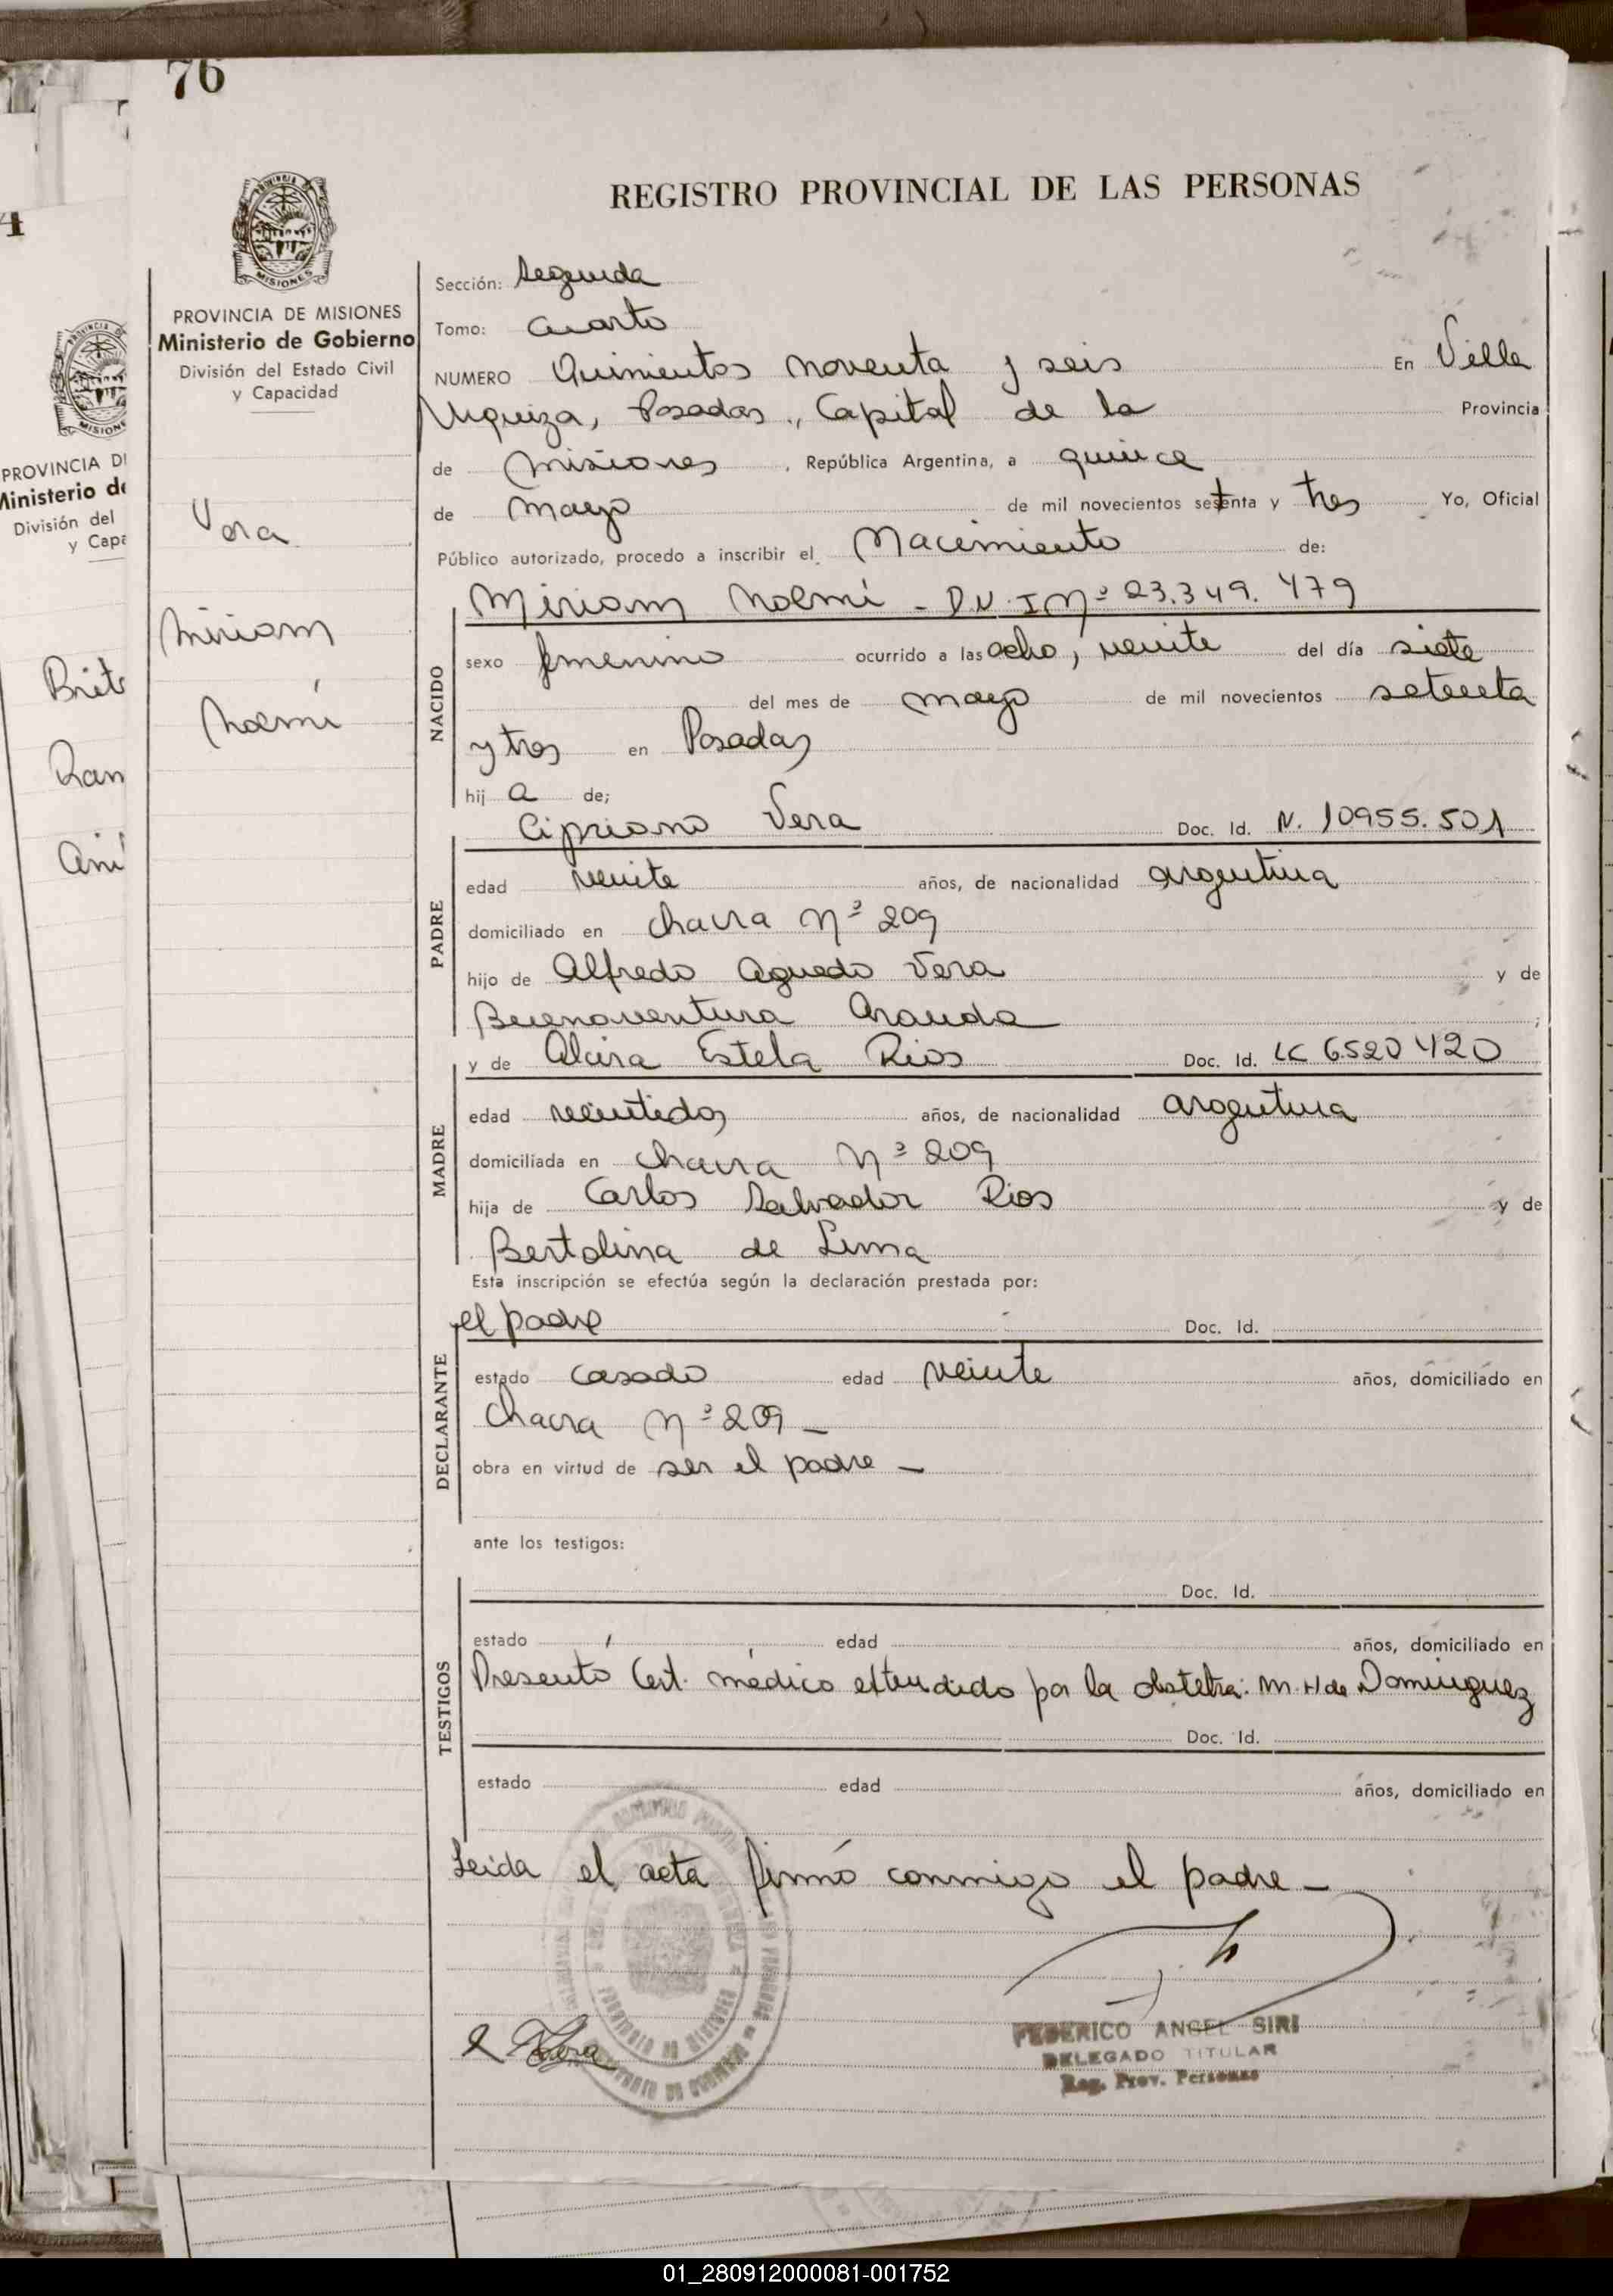 76
REGISTRO PROVINCIAL DE LAS PERSONAS
PROVINCIA DE MISIONES
Ministerio de Gobierno
División del Estado Civil
y Capacidad
Vera
Miriam
Noemí
Sección: Segunda
Tomo: Cuarto
NUMERO Quinientos noventa y seis En Villa
Urquiza, Posadas, Capital de la Provincia
de Misiones, República Argentina, a quince
de mayo de mil novecientos setenta y tres Yo, Oficial
Público autorizado, procedo a inscribir el Nacimiento de:
Miriam Noemí - D.N.I Nº 23.349.479
NACIDO
sexo femenino ocurrido a las ocho y veinte del día siete
del mes de mayo de mil novecientos setenta
y tres en Posadas
hij a de;
Cipriano Vera Doc. Id. N. 10955.501
PADRE
edad veinte años, de nacionalidad argentina
domiciliado en chacra Nº 209
hijo de Alfredo Aguedo Vera y de
Buenaventura Aranda;
y de Alcira Estela Rios Doc. Id. LC 6.520 420
MADRE
edad veintidos años, de nacionalidad argentina
domiciliada en chacra Nº 209
hija de Carlos Salvador Rios y de
Bertolina de Lima
Esta inscripción se efectúa según la declaración prestada por:
el padre Doc. Id.
DECLARANTE
estado casado edad veinte años, domiciliado en
Chacra Nº 209 -
obra en virtud de ser el padre -
ante los testigos:
Doc. Id.
TESTIGOS
estado edad años, domiciliado en
Presentó Cert. médico extendido por la obstetra: M. H de Dominguez
Doc. Id.
estado edad años, domiciliado en
Leida el acta firmó conmigo el padre -
FEDERICO ANGEL SIRI
DELEGADO TITULAR
Reg. Prov. Personas
01_280912000081-001752